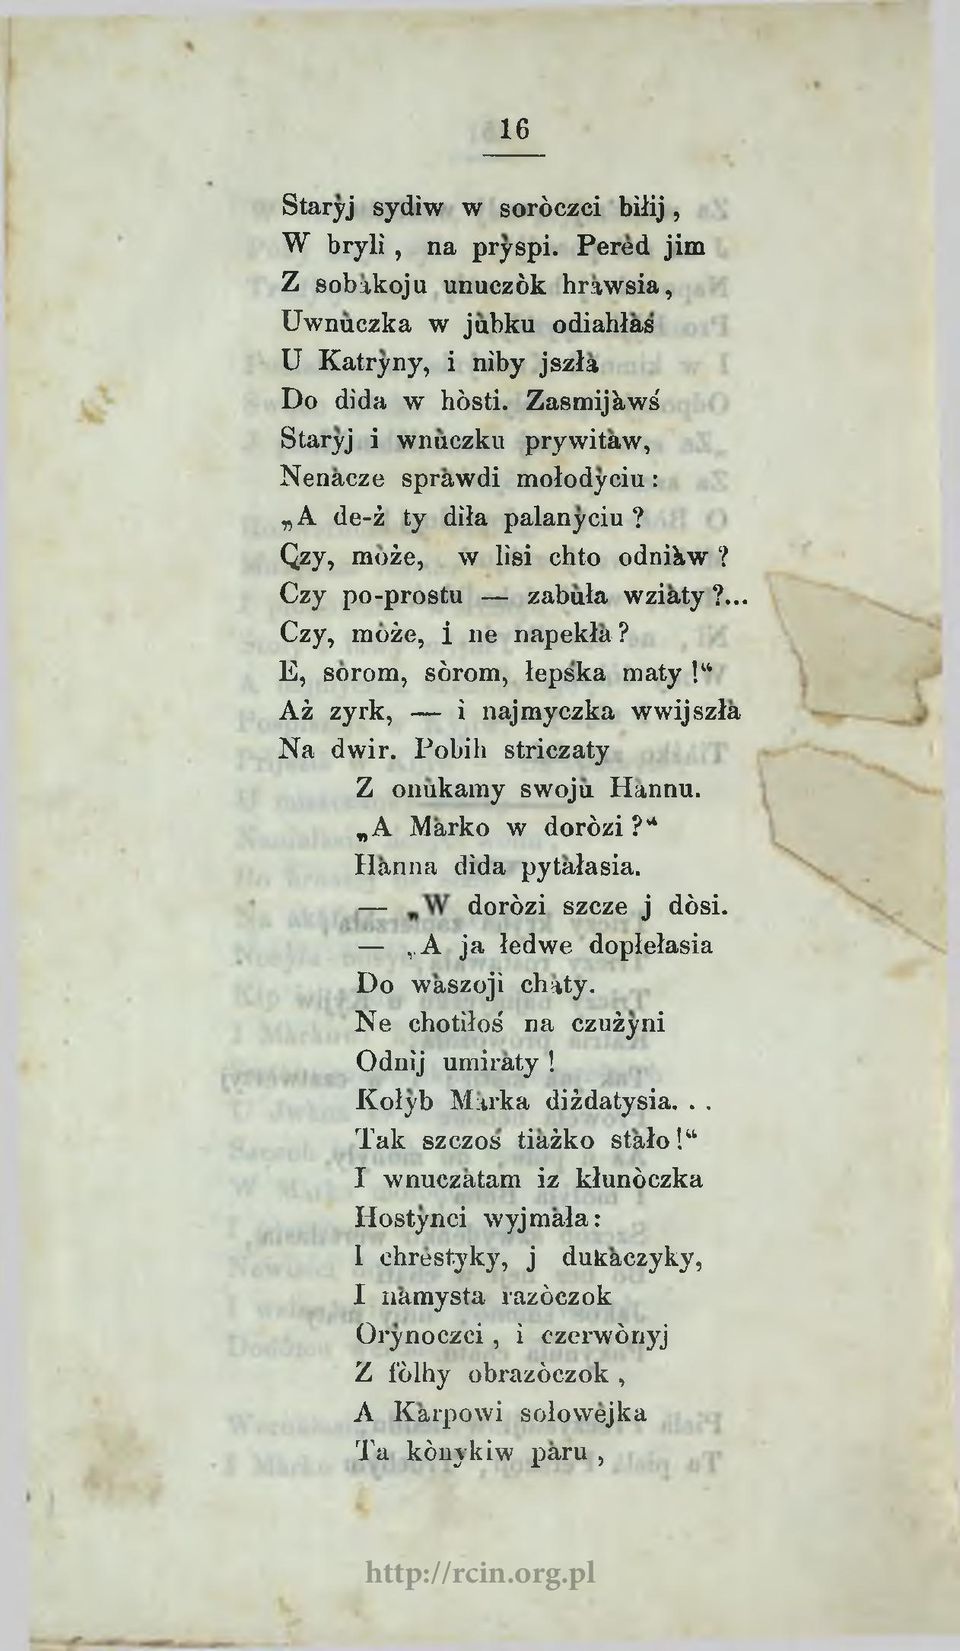 16
Starỳj sydìw w soròczci bìłij,
W brylì, na prỳspi. Perèd jim
Z sobàkoju unuczòk hràwsia,
Uwnùczka w jùbku odiahłàś
U Katrỳny, i nìby jszłà
Do dìda w hòsti. Zasmijàwś
Starỳj i wnùczku prywitàw,
Nenàcze spràwdi mołodỳciu:
„A de-ż ty dìła palanỳciu?
Czy, mòże, w lìsi chto odniàw?
Czy po-prostu — zabùła wziàty?...
Czy, mòże, i ne napekłà?
E, sòrom, sòrom, łepśka maty!“
Aż zyrk, — ì najmyczka wwijszłà
Na dwir. Pobih striczaty
Z onùkamy swojù Hànnu.
„A Màrko w doròzi?“
Hànna dìda pytàłasia.
— „W doròzi szcze j dòsi.
— „A ja łedwe dopłełasia
Do wàszoji chàty.
Ne chotìłoś na czużỳni
Odnìj umiràty!
Kołỳb Màrka diżdatysia. . .
Tak szczoś tiàżko stàło!“
I wnuczàtam iz kłunòczka
Hostỳnci wyjmàła:
I chrèstyky, j dukàczyky,
I nàmysta razòczok
Orỳnoczci, ì czerwònyj
Z fòlhy obrazòczok,
A Kàrpowi sołowèjka
Ta kònykiw pàru,
http://rcin.org.pl